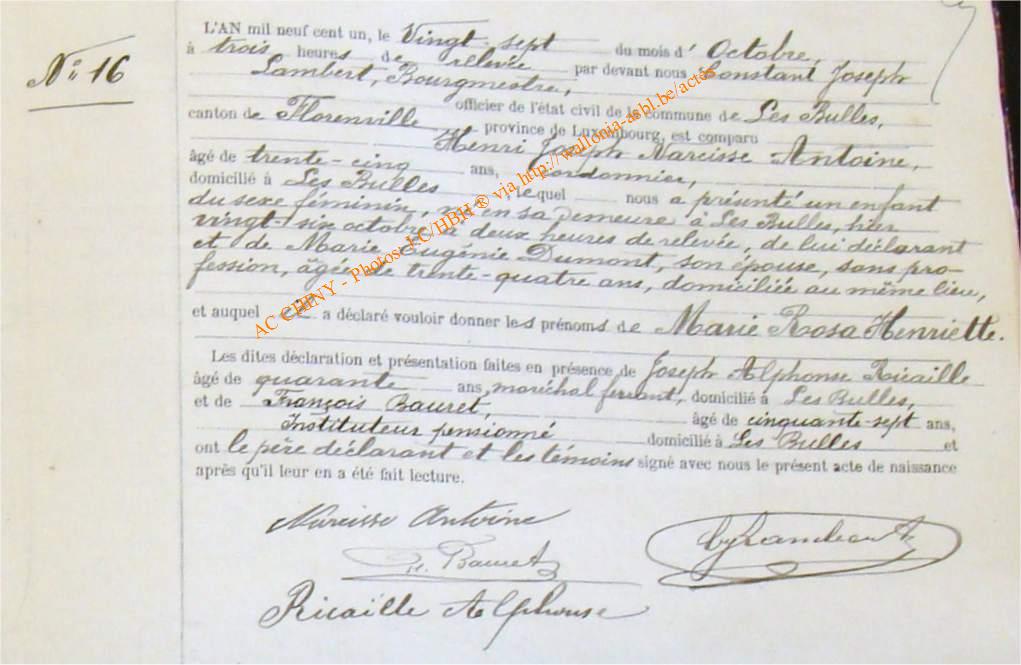 N° 16
L'AN mil neuf cent un, le Vingt-sept du mois d'Octobre,
à trois heures de relevée par devant nous Constant Joseph
Lambert, Bourgmestre,
officier de l'état civil de la commune de Les Bulles,
canton de Florenville province de Luxembourg, est comparu
Henri Joseph Narcisse Antoine,
âgé de trente-cinq ans, Cordonnier,
domicilié à Les Bulles, lequel nous a présenté un enfant
du sexe féminin, né en sa demeure à Les Bulles, hier
vingt-six octobre à deux heures de relevée, de lui déclarant
et de Marie Eugénie Dumont, son épouse, sans pro-
fession, âgée de trente-quatre ans, domiciliée au même lieu,
et auquel il a déclaré vouloir donner les prénoms de Marie Rosa Henriette.
Les dites déclaration et présentation faites en présence de Joseph Alphonse Ricaille
âgé de quarante ans, maréchal ferrant, domicilié à Les Bulles,
et de François Bauret, âgé de cinquante-sept ans,
Instituteur pensionné domicilié à Les Bulles et
ont le père déclarant et les témoins signé avec nous le présent acte de naissance
après qu'il leur en a été fait lecture.
Narcisse Antoine
Bauret
Ricaille Alphonse
AC CHINY - Photos: LC/HBH ® via http://wallonia-asbl.be/actes